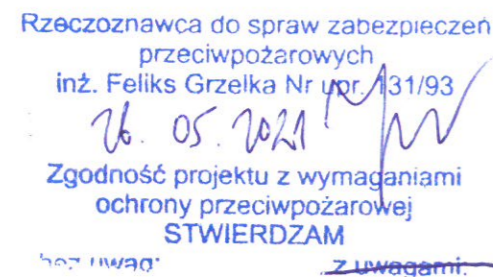 Rzeczoznawca do spraw zabezpieczeń
przeciwpożarowych
inż. Feliks Grzelka Nr upr. 131/93
26. 05. 2021
Zgodność projektu z wymaganiami
ochrony przeciwpożarowej
STWIERDZAM
bez uwag: z uwagami: